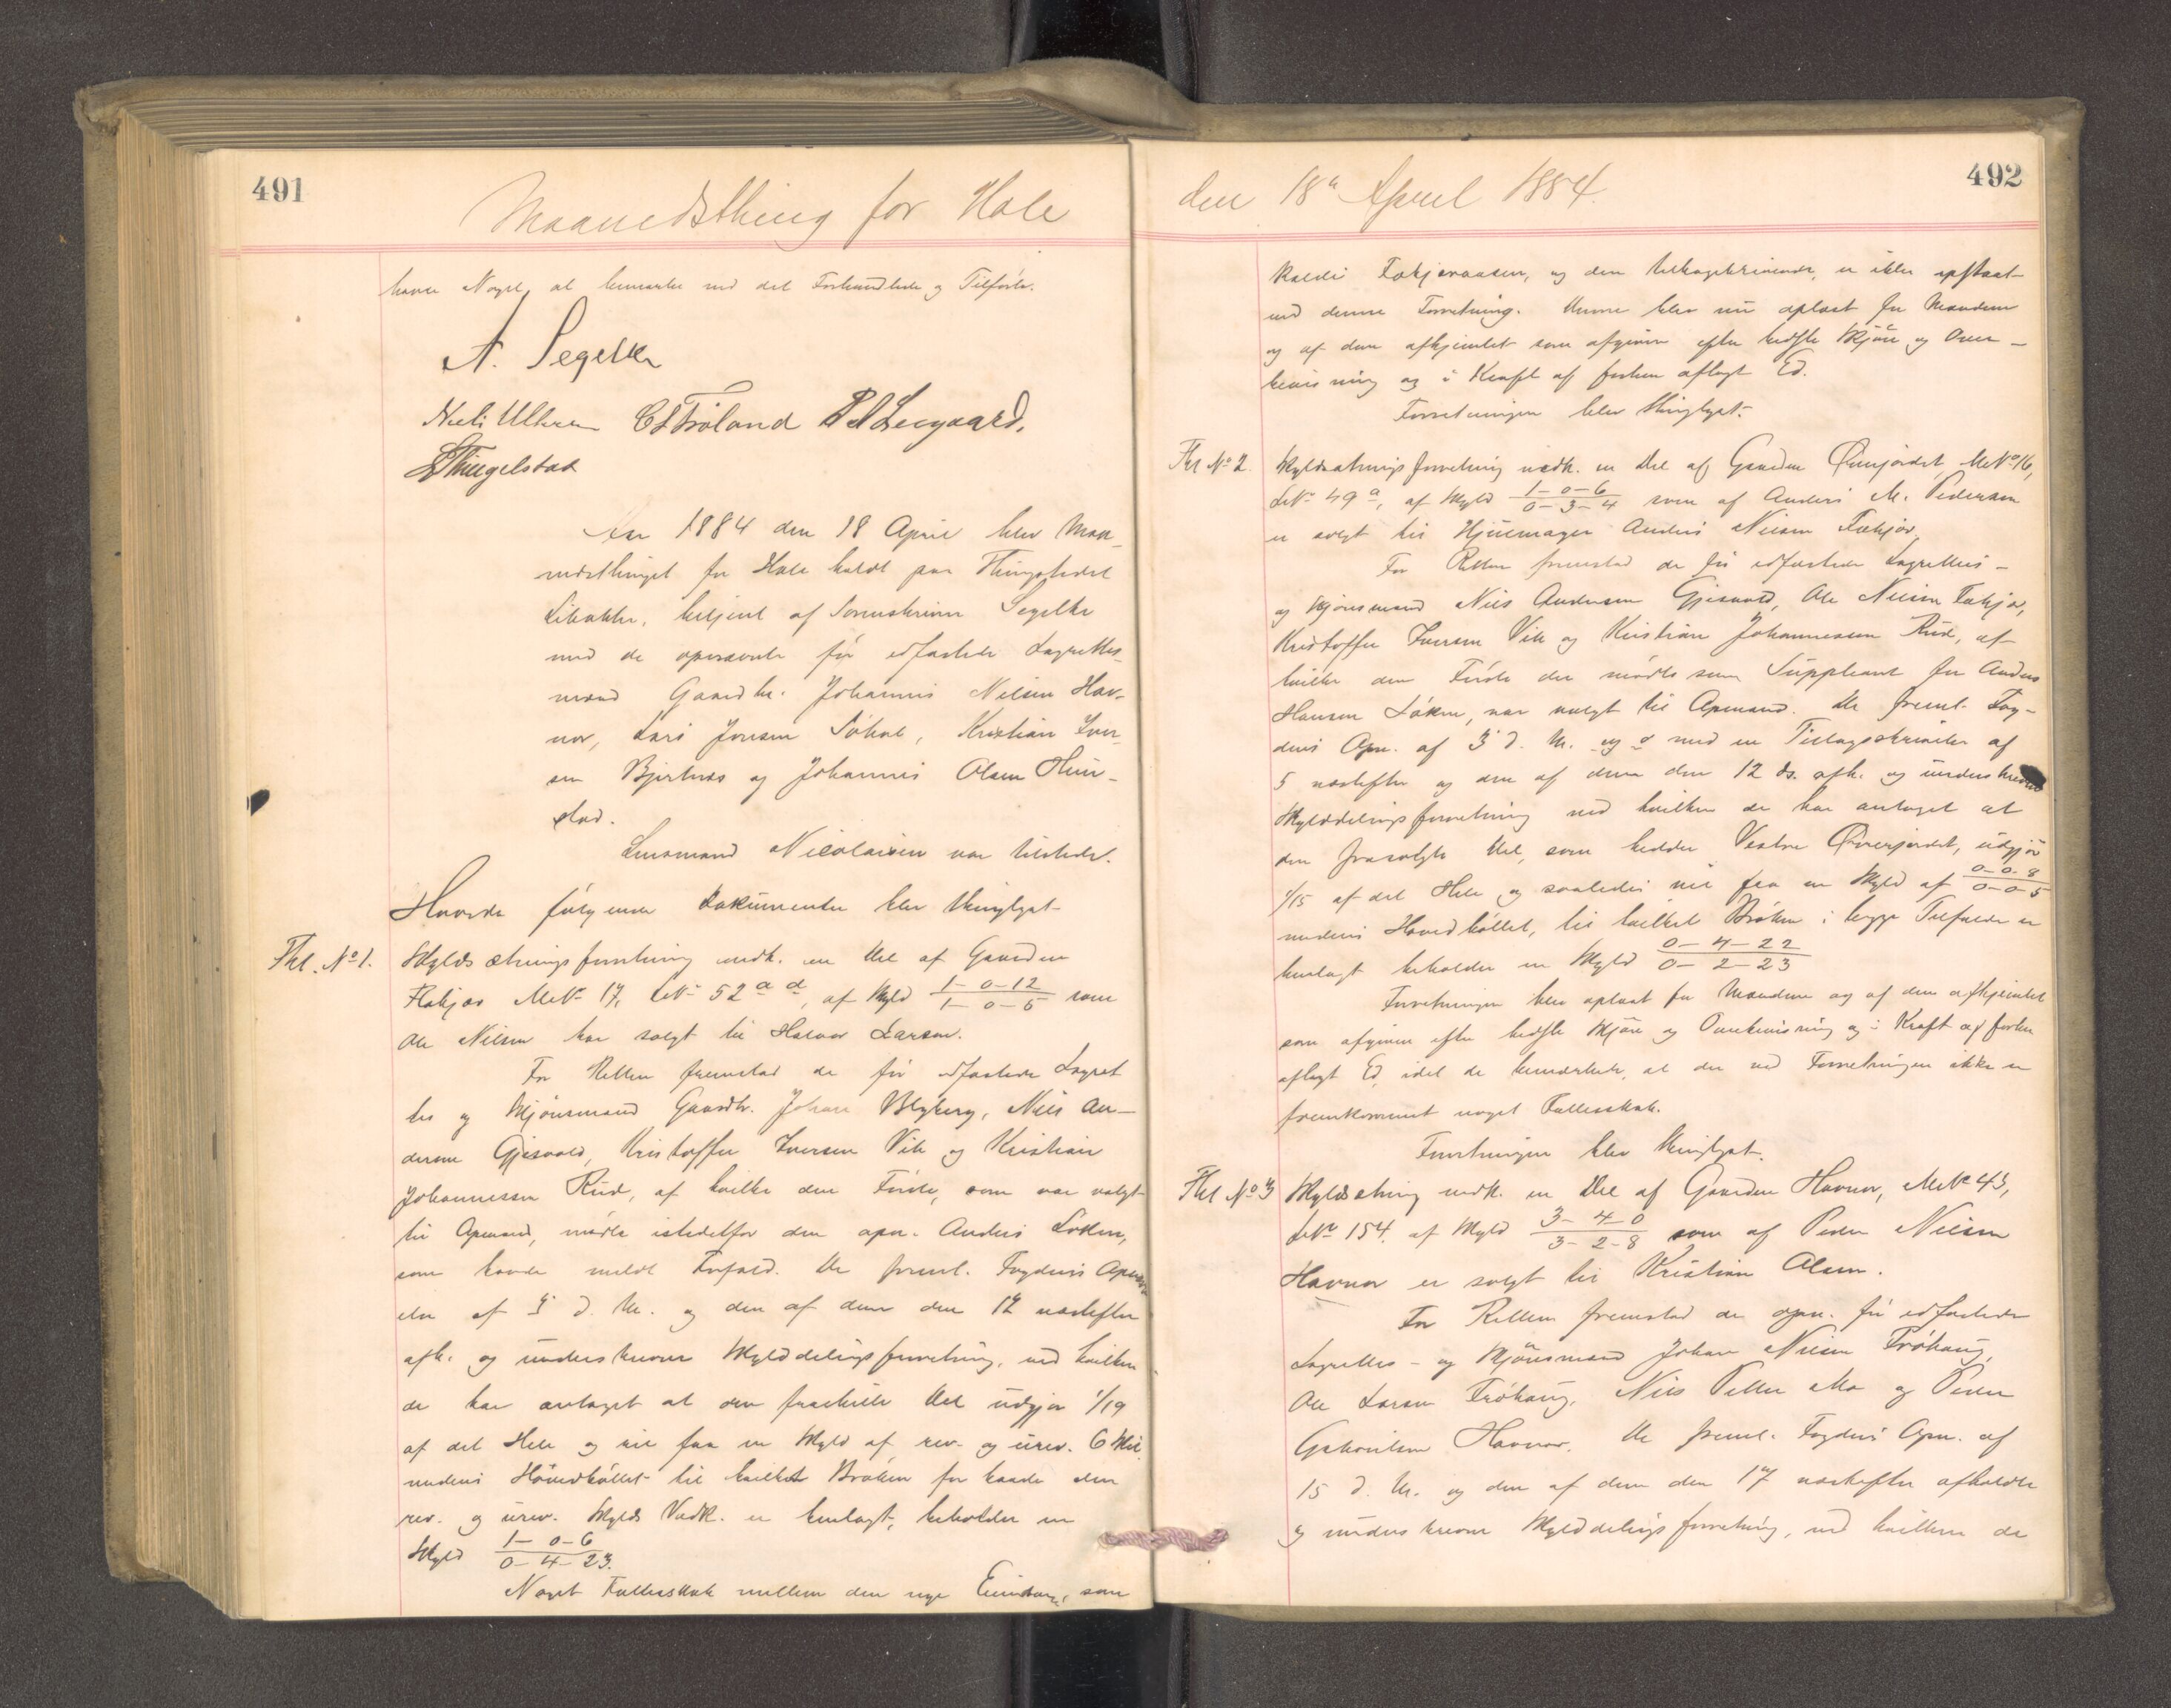 491
Maanedsthing for Hole
havde Noget at bemærke ved det Forhandlede og Tilførte.
A. Segelke
CTFröland
Thingelstad
Aar 1884 den 18 April blev Maa-
nedsthinget for Hole holdt paa Thingstedet
betjent af Sorenskriver Segelke
med de opnævnte fir edfæstede Lagrettes-
mænd Gaardbr. Johannes Nielsen Hav-
nor, Lars Jonsen Søhol, Kristian Iver-
sen Bjertnæs og Johannes Olsen Hun-
stad.
Lensmand Nicolaisen var tilstede.
Hvorda følgende Dokumenter blev thinglyst
Thl. No 1.
Skyldsætningsforretning vedk. en Del af Gaarden
Fækjør MNo 17, LNo 52 a d, af Skyld 1-0-12 / 1-0-5 som
Ole Nilsen har solgt til Halvor Larsen.
For Retten fremstod de fir edfæstede Lagret-
tes og Skjønsmænd Gaardbr. Johan Blyberg, Nils An-
dersen Gjesvold, Kristoffer Iversen Vik og Kristian
Johannessen Rud, af hvilke den Første, som var valgt
til Opmand, mødte istedetfor den opn. Anders Løken,
som havde meldt Forfald. De freml. Fogdens Opnævn-
else af 3 d. M. og den af dem den 12 næstefter
afh. og underskrevne Skylddelingsforretning, ved hvilken
de har antaget at den fraskilte Del udgjør 1/19
af det Hele og vil faa en Skyld af rev. og urev. 6 Skil.
medens Hovedbøllet til hvilket Brøken for baade den
rev. og urev. Skylds Vedk. er henlagt, beholder en
Skyld 1-0-6 / 0-4-23.
Noget Fællesskab mellem den nye Eiendom, som
492
den 18de April 1884.
kaldes Fækjøraasen, og den tilbageblivende, er ikke opstaaet
ved denne Forretning. Denne blev nu oplæst for Mændene
og af dem afhjemlet som afgiven efter bedste Skjøn og Over-
bevisning og i Kraft af forhen aflagt Ed.
Forretningen blev thinglyst.
Thl No 2.
Skyldsætningsforretning vedk. en Del af Gaarden Øverjordet, MNo 16,
LNo 49 a, af Skyld 1-0-6 / 0-3-4 som af Anders M. Pedersen
er solgt til Hjulmager Anders Nilsen Fækjør.
For Retten fremstod de fir edfæstede Lagrettes-
og Skjønsmænd Nils Andersen Gjesvold, Ole Nilsen Fækjør,
Kristoffer Iversen Vik og Kristian Johannessen Rud, af
hvilke den Første der mødte som Suppleant for Anders
Hansen Løken, var valgt til Opmand. De freml. Fog-
dens Opn. af 3 d. M. og med en Tillægsskrivelse af
5 næstefter og den af dem den 12 ds. afh. og underskrevne
Skylddelingsforretning ved hvilken de har antaget at
den frasolgte Del, som kaldes Vestre Øverjordet, udgjør
1/15 af det Hele og saaledes vil faa en Skyld af 0-0-8 / 0-0-5
medens Hovedbøllet, til hvilket Brøken i begge Tilfælde er
henlagt beholder en Skyld 0-4-22 / 0-2-23
Forretningen blev oplæst for Mændene og af dem afhjemlet
som afgiven efter bedste Skjøn og Overbevisning og i Kraft af forhen
aflagt Ed, idet de bemærkede, at der ved Forretningen ikke er
fremkommet noget Fællesskab.
Forretningen blev thinglyst.
Thl No 3
Skyldsætning vedk. en Del af Gaarden Havnor, MNo 43,
LNo 154, af Skyld 3-4-0 / 3-2-8 som af Peder Nilsen
Havnor er solgt til Kristian Olsen.
For Retten fremstod de opn. fir edfæstede
Lagrettes- og Skjønsmænd Johan Nilsen Frøhaug,
Ole Larsen Frøhaug, Nils Petter Mo og Peder
Havnor. De freml. Fogdens Opn. af
15 d. M. og den af dem den 17 næstefter afholdte
og underskrevne Skylddelingsforretning, ved hvilken de